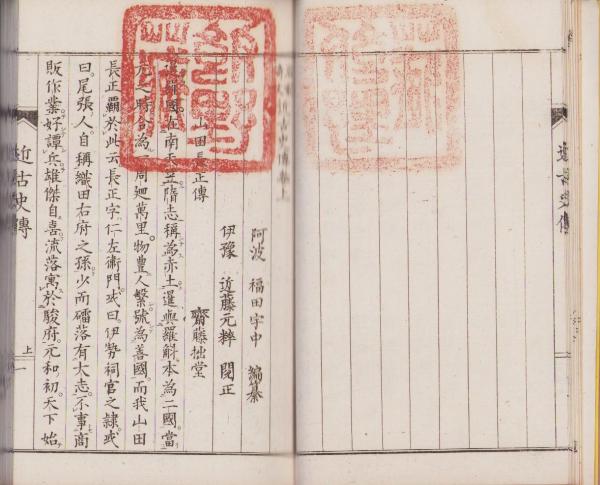 阿波 福田宇中 編纂
伊豫 近藤元粹 閲正
山田長正傳 齋藤拙堂
暹羅國在南天竺隋志稱爲赤土暹與羅斛本爲二國當
元之時合爲一周廻萬里物豊人繁號爲善國而我山田
長正覇於此云長正字仁左衛門或曰伊勢祠官之隷或
曰尾張人自稱織田右府之孫少而磊落有大志不事商
販作業好譚兵雄傑自喜流落寓於駿府元和初天下始
近古史傳
上 一